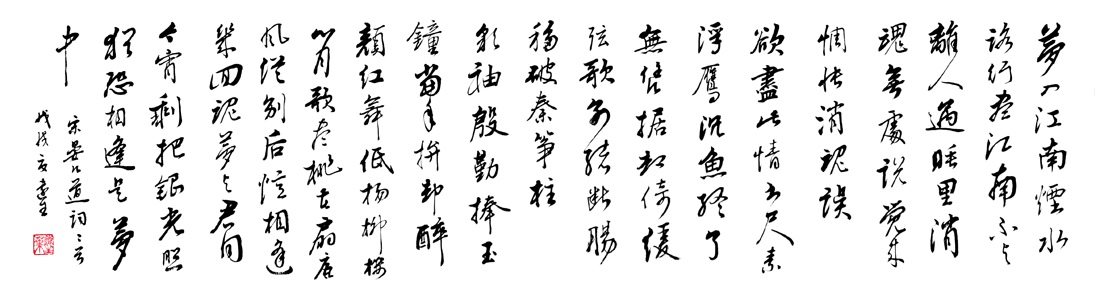 夢入江南煙水
路行盡江南不與
離人遇睡里消
魂無處說覺來
惆悵消魂誤
欲盡此情書尺素
浮鴈沉魚終了
無信據却倚緩
弦歌別緒斷腸
移破秦箏柱
彩袖殷勤捧玉
鐘當年拚却醉
顏紅舞低楊柳樓
心月歌盡桃花扇底
風從別后憶相逢
幾回魂夢與君同
今宵剩把銀光照
猶恐相逢是夢
中
宋晏几道詞二首
戊戌